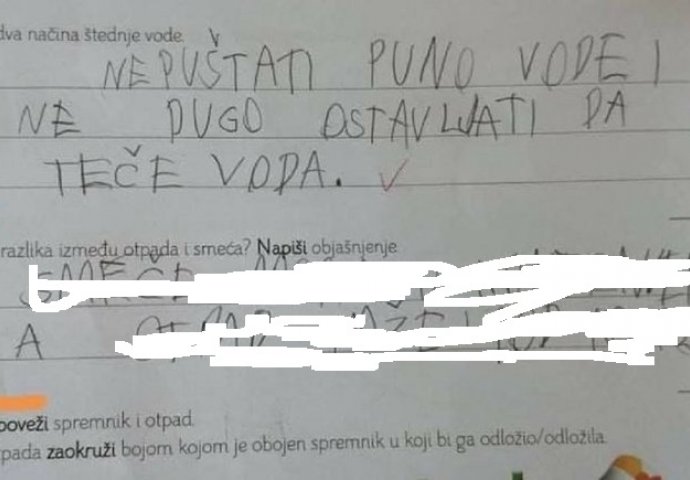 dva načina štednje vode.
NEPUŠTATI PUNO VODE I
NE DUGO OSTAVLJATI DA
TEČE VODA.
razlika između otpada i smeća? Napiši objašnjenje.
A
poveži spremnik i otpad.
pada zaokruži bojom kojom je obojen spremnik u koji bi ga odložio/odložila.